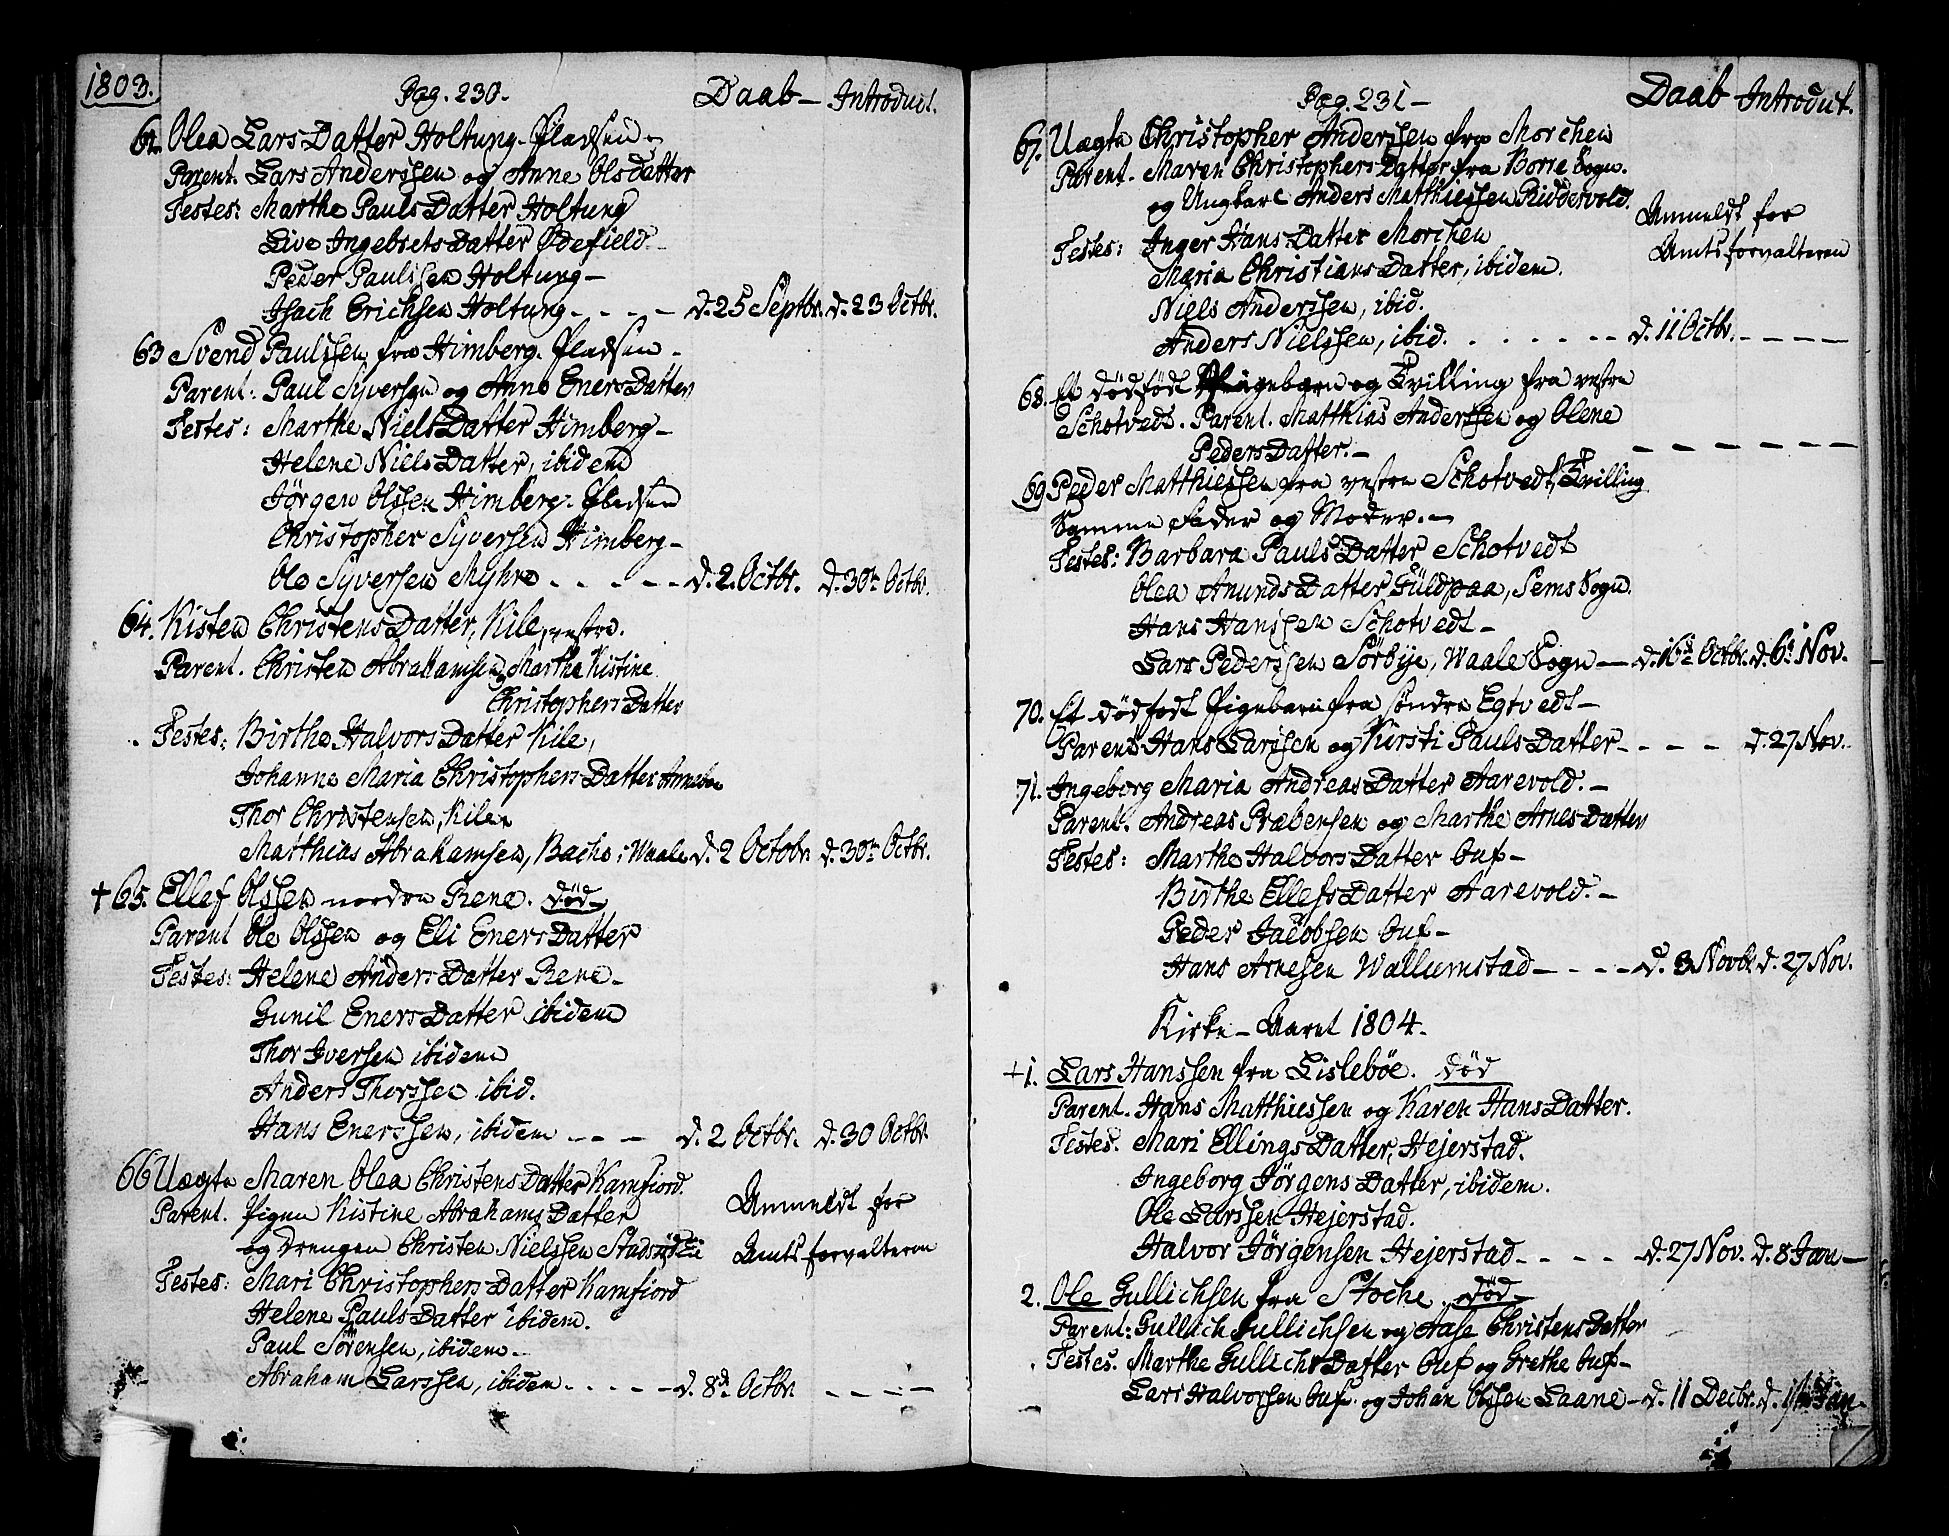 1803.
Pag. 230. Daab - Introduct.
62. Olea Lars Datter Holtung-Pladsen -
Parent. Lars Anderssen og Anne Olsdatter
Testes: Marthe Pauls Datter Holtung
Live Ingebrets Datter Ødefield -
Peder Paulssen Holtung -
Isach Erichsen Holtung - - - - d. 25 Septbr. d. 23 Octbr.
63 Svend Paulssen fra Himberg-Pladsen -
Parent: Paul Syversen og Anne Eners Datter
Testes: Marthe Niels Datter Himberg -
Helene Niels Datter, ibidem
Jörgen Olssen Himberg-Pladsen
Christopher Syversen Himberg -
Ole Syversen Myhre - - - - - d. 2. Octbr. d. 30te Octbr.
64. Kisten Christens Datter, Kile, vestre.
Parent. Christen Abrahamsen & Marthe Kistine
Christophers Datter
Testes: Birthe Halvors Datter Kile,
Johanne Maria Christophers Datter
Thor Christensen, Kile
Matthias Abrahamsen, Bache i Waale d. 2 Octobr. d. 30te Octbr.
+ 65. Ellef Olssen nordre Rene. död -
Parent Ole Olssen og Eli Eners Datter
Testes: Helene Anders Datter Rene -
Gunil Eners Datter ibidem
Thor Iversen ibidem
Anders Thorssen ibid.
Hans Enerssen, ibidem - - - d. 2 Octbr. d. 30 Octbr.
66 Uægte Maren Olea Christens Datter Kamfiord.
Parent. Pigen Kistine Abrahams Datter Anmeldt for
og Drengen Christen Nielssen Amtsforvalteren
Testes: Mari Christophers Datter Kamfiord
Helene Pauls Datter ibidem.
Paul Sörensen, ibidem -
Abraham Larssen, ibidem - - - - - d. 8de Octbr. - - - -
Pag. 231 - Daab Introduct.
67. Uægte Christopher Anderssen fra Morchen
Parent. Maren Christophers Datter fra Borre Sogn.
og Ungkarl Anders Matthiessen Riddervold. Anmeldt for
Testes: Inger Hans Datter Morchen Amtsforvalteren
Maria Christians Datter, ibidem.
Niels Anderssen, ibid.
Anders Nielssen, ibid. - - - - - - d. 11 Octbr. - - - -
68. Et dödfödt Pigebarn og Tvilling fra vestre
Schotvedt. Parent. Matthias Anderssen og Olene
Peders Datter. - - - - - - - - -
69 Peder Matthiessen fra vestre Schotvedt, Tvilling
Samme Fader og Moder. -
Testes: Barbara Pauls Datter Schotvedt
Olea Anunds Datter Güldpaa, Sems Sogn.
Hans Hanssen Schotvedt -
Lars Pederssen Sörbye, Waale Sogn - d. 16de Octbr. d. 6te Nov.
70. Et dödfödt Pigebarn fra söndre Egtvedt -
Parent Hans Larssen og Kirsti Pauls Datter - - - - d. 27 Nov.
71. Ingeborg Maria Andreas Datter Aarevold. -
Parent. Andreas Præbensen og Marthe Arnes Datter
Testes: Marthe Halvors Datter Ouf -
Birthe Ellefs Datter Aarevold. -
Peder Jacobsen Ouf -
Hans Arnesen Wallumstad - - - - d. 3 Novbr. d. 27 Nov.
Kirke-Aaret 1804.
+ 1. Lars Hanssen fra Lisleböe. död
Parent. Hans Matthiessen og Karen Hans Datter.
Testes. Mari Ellings Datter, Hejerstad.
Ingeborg Jörgens Datter, ibidem.
Ole Larssen Hejerstad.
Halvor Jörgensen Hejerstad - - - - d. 27 Nov. d. 8 Jan -
2. Ole Gullichsen fra Stoche. död -
Parent: Gullich Gullichsen og Aase Christens Datter
Testes. Marthe Gullichs Datter Ouf og Grethe Ouf -
Lars Halvorssen Ouf og Johan Olssen Laane - d. 11 Decbr. d. Jan -